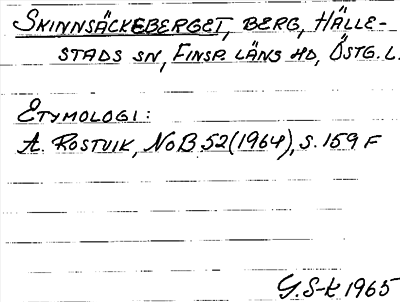 SKINNSÄCKEBERGET, BERG, HÄLLE-
STADS SN, FINSP. LÄNS HD, ÖSTG. L.
ETYMOLOGI:
A. ROSTVIK, NoB 52(1964), S. 159 F
G. S-k 1965